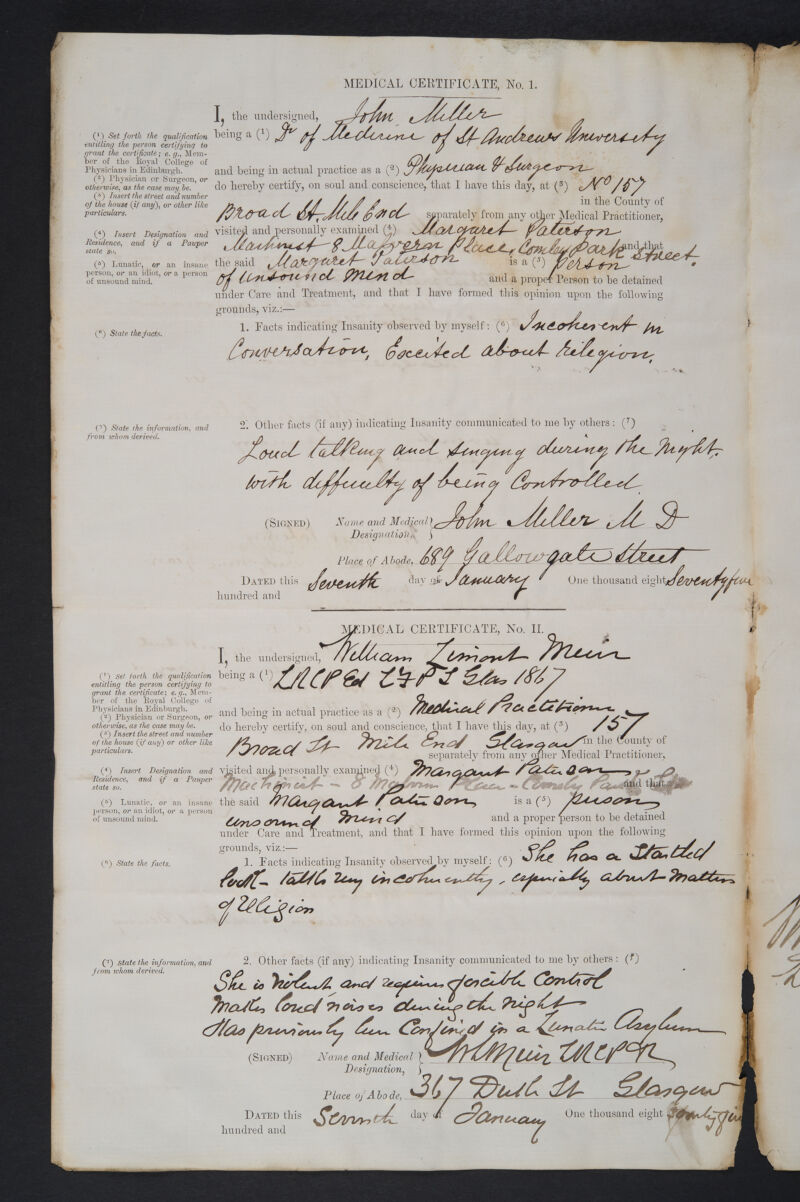 MEDICAL CERTIFICATE, No. 1.
I, the undersigned, John Miller
(¹) Set forth the qualification entitling the person certifying to grant the certificate; e. g., Member of the Royal College of Physicians in Edinburgh.
being a (¹) Dr of Medicine of St Andrews University
(²) Physician or Surgeon, or otherwise, as the case may be.
and being in actual practice as a (²) Physician & Surgeon
(³) Insert the street and number of the house (if any), or other like particulars.
do hereby certify, on soul and conscience, that I have this day, at (³) No 157
in the County of
Broad St. Mile End separately from any other Medical Practitioner,
(⁴) Insert Designation and Residence, and if a Pauper state so.
visited and personally examined (⁴) Margaret Paterson
Machinist 8 Malvern Place, Comley Park Street. and that
(⁵) Lunatic, or an insane person, or an idiot, or a person of unsound mind.
the said Margaret Paterson is a (⁵) Person
of unsound mind and a proper Person to be detained
under Care and Treatment, and that I have formed this opinion upon the following
grounds, viz.:—
(⁶) State the facts.
1. Facts indicating Insanity observed by myself: (⁶) Incoherent in
Conversation, Excited about religion.
(⁷) State the information, and from whom derived.
2. Other facts (if any) indicating Insanity communicated to me by others: (⁷)
Loud talking and singing during the Night.
with difficulty of being Controlled
(SIGNED) Name and Medical Designation, John Miller M D
Place of Abode, 689 Gallowgate Street
DATED this Seventh day of January One thousand eight Seventyfive
hundred and
MEDICAL CERTIFICATE, No. II.
I, the undersigned, William Limont Muir
(¹) Set forth the qualification entitling the person certifying to grant the certificate; e. g., Member of the Royal College of Physicians in Edinburgh.
being a (¹) LRCP Ed L F P S Glas 1867
(²) Physician or Surgeon, or otherwise, as the case may be.
and being in actual practice as a (²) Medical Practitioner
(³) Insert the street and number of the house (if any) or other like particulars.
do hereby certify, on soul and conscience, that I have this day, at (³) 157
Broad St Mile End Glasgow in the County of
separately from any other Medical Practitioner,
(⁴) Insert Designation and Residence, and if a Pauper state so.
visited and personally examined (⁴) Margaret Paterson
Machinist - 8 Malvern Place - Comely Park and that
(⁵) Lunatic, or an insane person, or an idiot, or a person of unsound mind.
the said Margaret Paterson is a (⁵) person
unsound mind and a proper person to be detained
under Care and Treatment, and that I have formed this opinion upon the following
grounds, viz:—
(⁶) State the facts.
1. Facts indicating Insanity observed by myself: (⁶) She has a Startled
look - talks very incoherently, especially about matters
of religion
(⁷) State the information, and from whom derived.
2. Other facts (if any) indicating Insanity communicated to me by others: (⁷)
She is Violent and requires forcible Control
Makes loud noises during the Night
Has previously been Confined in a Lunatic Asylum
(SIGNED) Name and Medical Designation, WL Muir LRCP
Place of Abode, 367 St Glasgow
DATED this Seventh day of January One thousand eight
hundred and